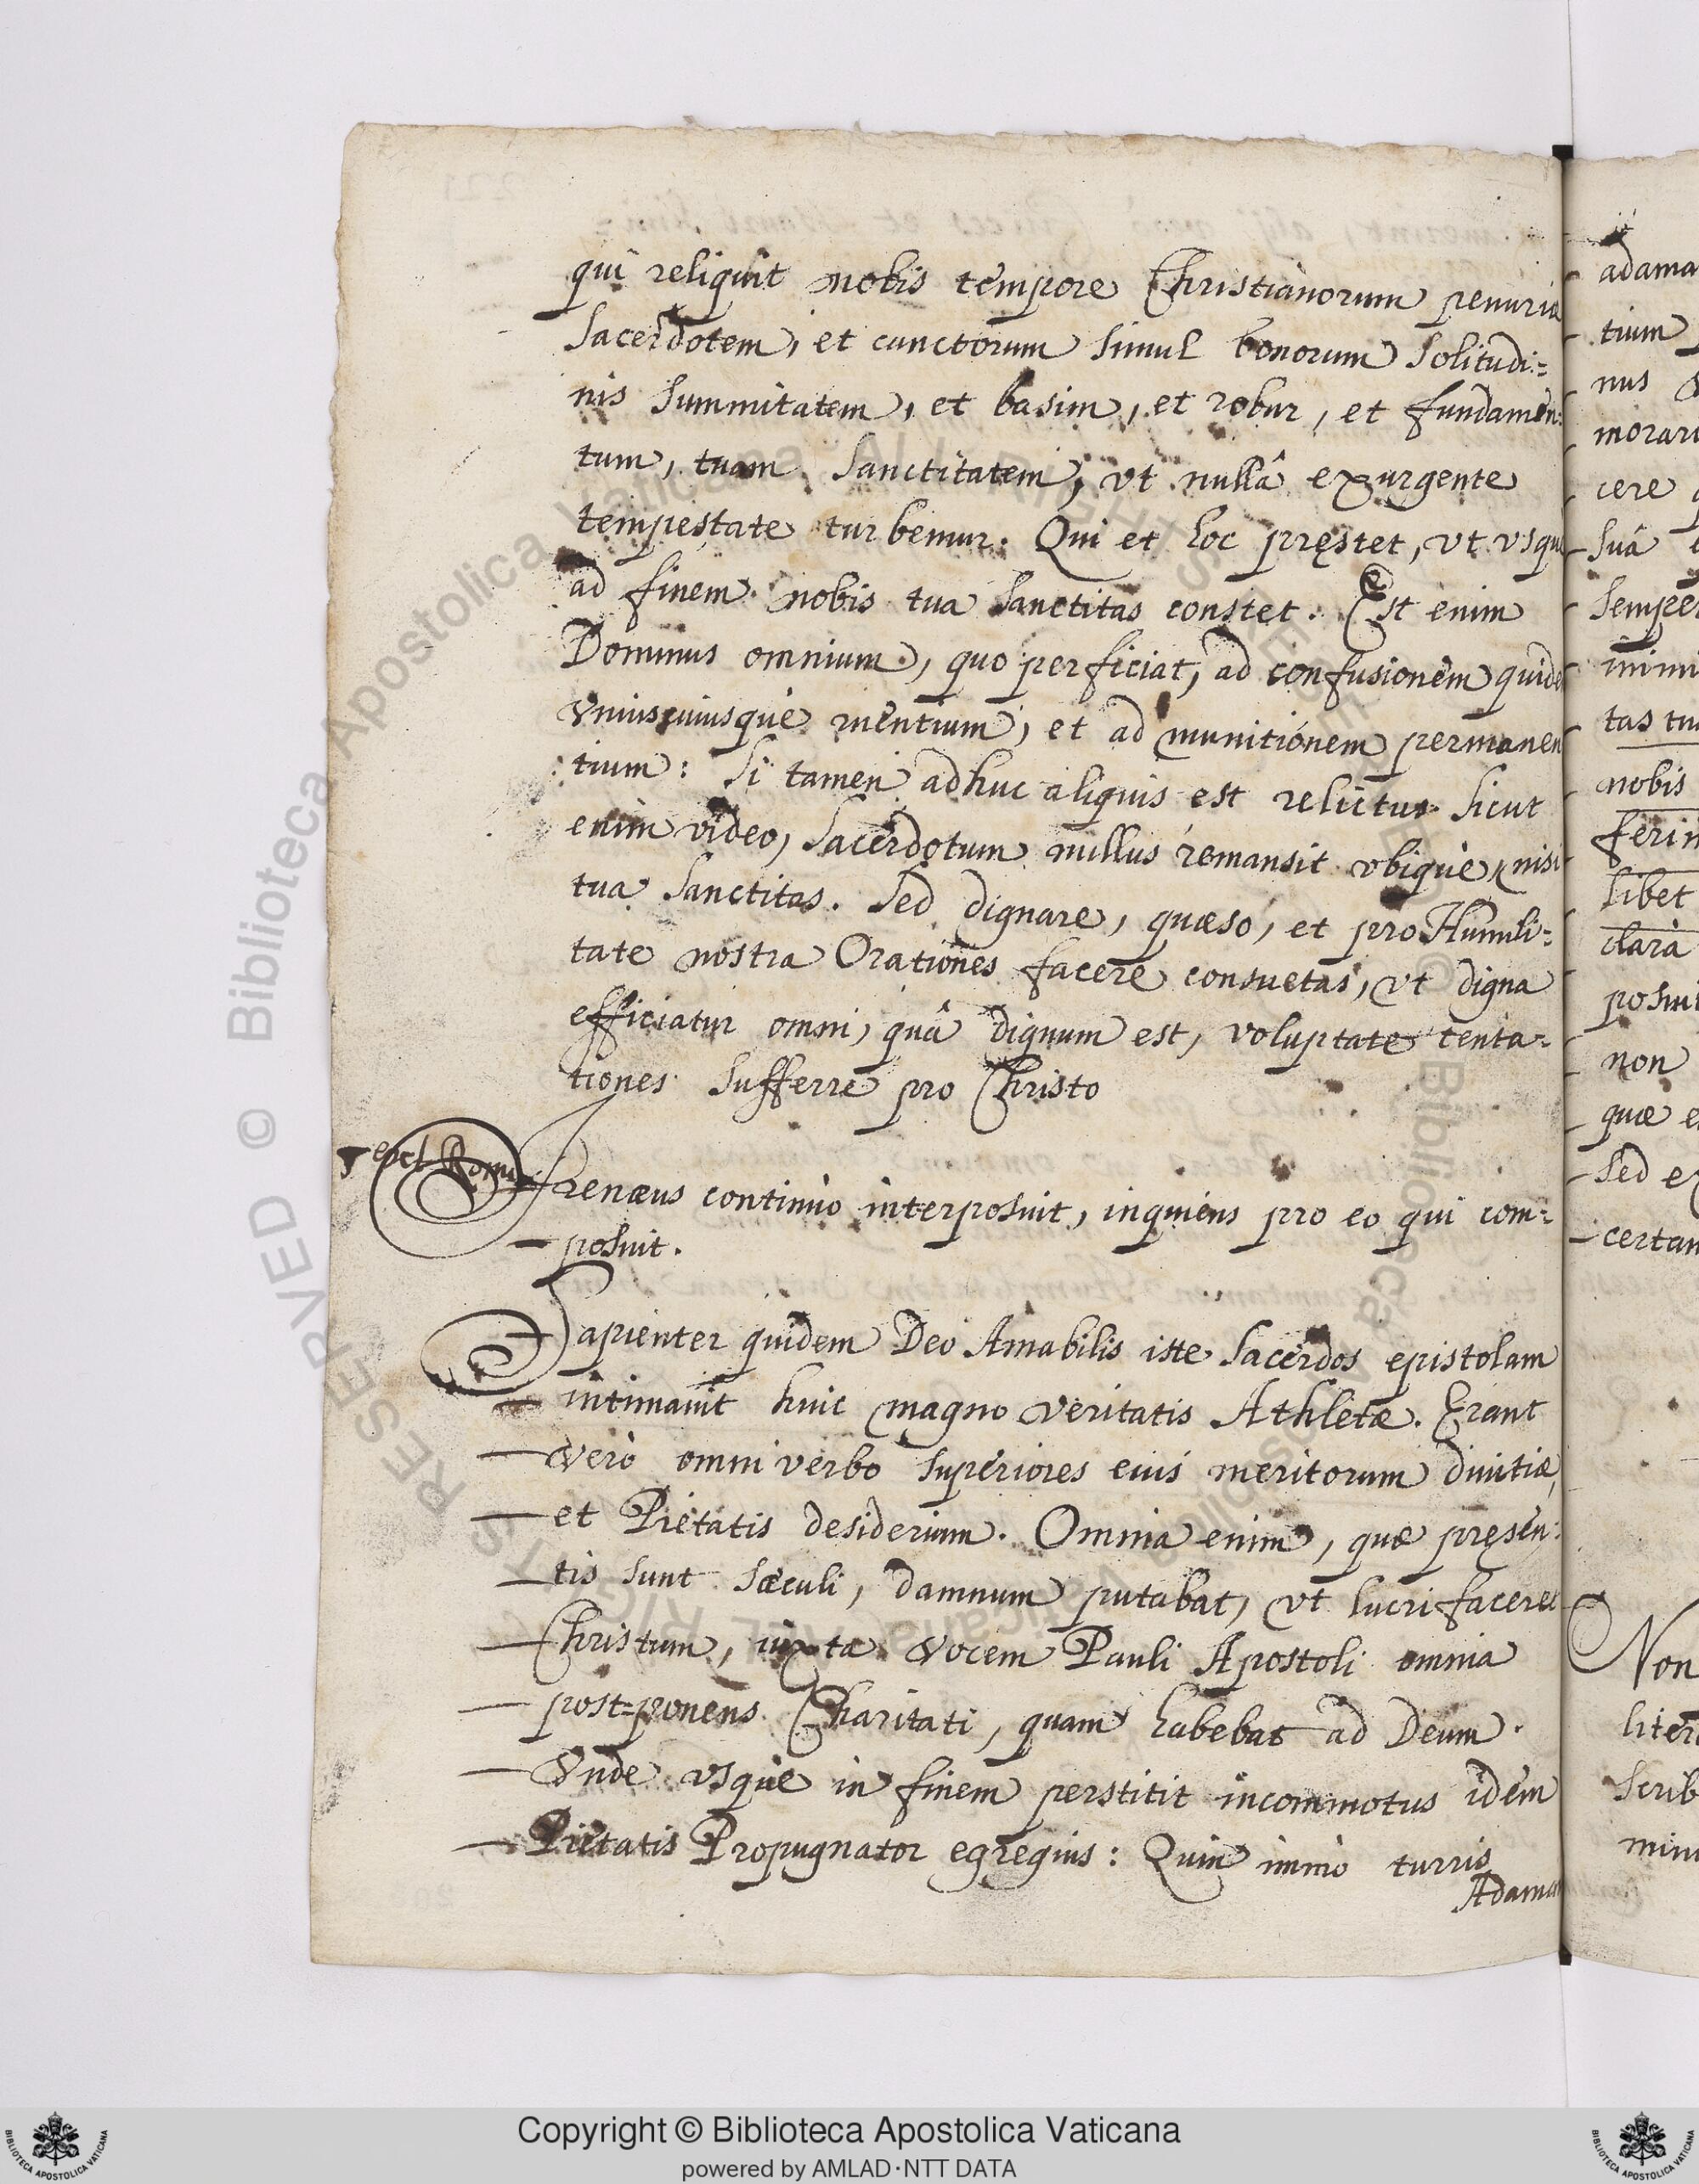 qui reliquit nobis tempore Christianorum penuria
Sacerdotem, et cunctorum simul bonorum solitudi=
nis summitatem, et basim, et robur, et fundamen=
tum, tuam Sanctitatem, vt nullâ exurgente
tempestate turbemur. Qui et hoc pręstet, vt vsque
ad finem nobis tua Sanctitas constet. Est enim
Dominus omnium, quo perficiat, ad confusionem quide
vniuscuiusque mentium, et ad munitionem permanen
tium: Si tamen adhuc aliquis est relictus. Sicut
enim video, Sacerdotum nullus remansit vbique, nisi
tua Sanctitas. Sed dignare, quæso, et pro Humili=
tate nostra Orationes facere consuetas, vt digna
efficiatur omni, quâ dignum est, voluptate tenta=
tiones sufferre pro Christo
Irenæus continuo interposuit, inquiens pro eo qui com=
posuit.
Sapienter quidem Deo Amabilis iste Sacerdos epistolam
intimauit huic magno veritatis Athletæ. Erant
verò omni verbo superiores eius meritorum diuitiæ,
et Pietatis desiderium. Omnia enim, quæ pręsen=
tis sunt sæculi, damnum putabat, vt lucrifaceret
Christum, iuxta vocem Pauli Apostoli omnia
post=ponens Charitati, quam habebat ad Deum.
Vnde vsque in finem perstitit incommotus idem
Pietatis Propugnator egregius: Quin immò turris
Adaman
adama
tium
nus
morari
cere
suâ
semper
inimi
tas tu
nobis
ferin
libet
clara
posui
non
quæ e
sed ex
certam
Non
liter
scrib
min
© Biblioteca Apostolica Vaticana
RESERVED
Copyright © Biblioteca Apostolica Vaticana
powered by AMLAD·NTT DATA
BIBLIOTECA APOSTOLICA VATICANA
BIBLIOTECA APOSTOLICA VATICANA